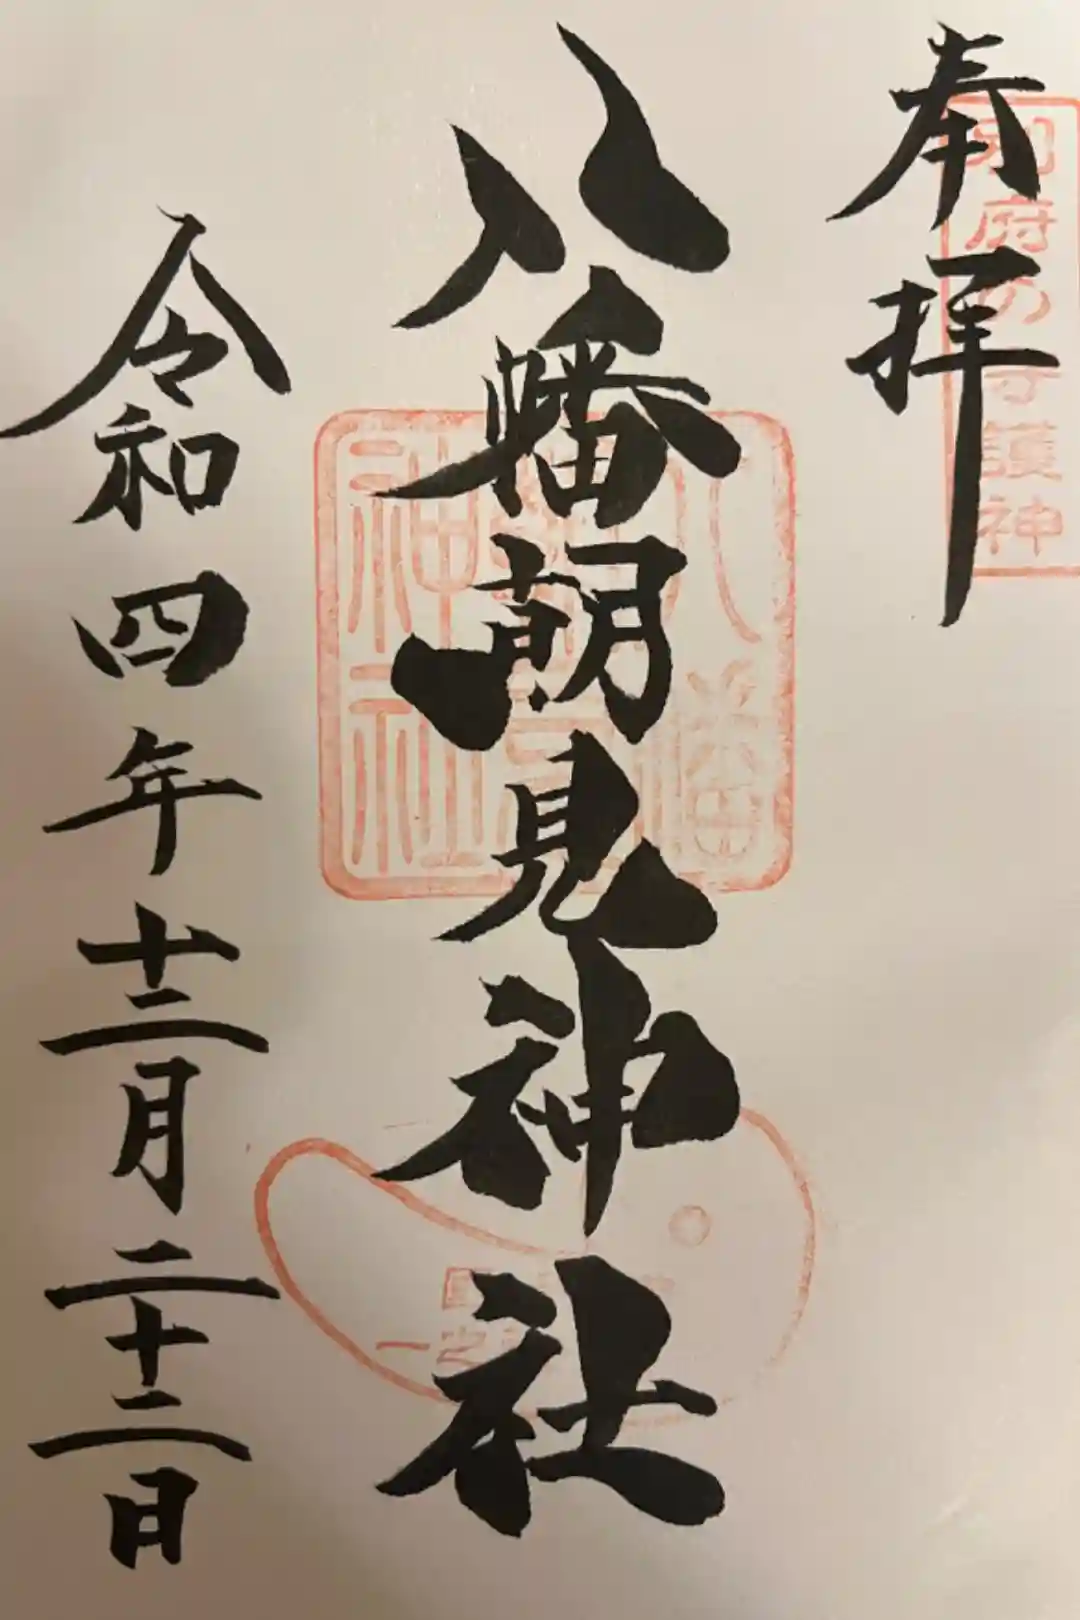 奉拝
別府の守護神
八幡朝見神社
八幡朝見神社
一之
令和四年十二月二十二日